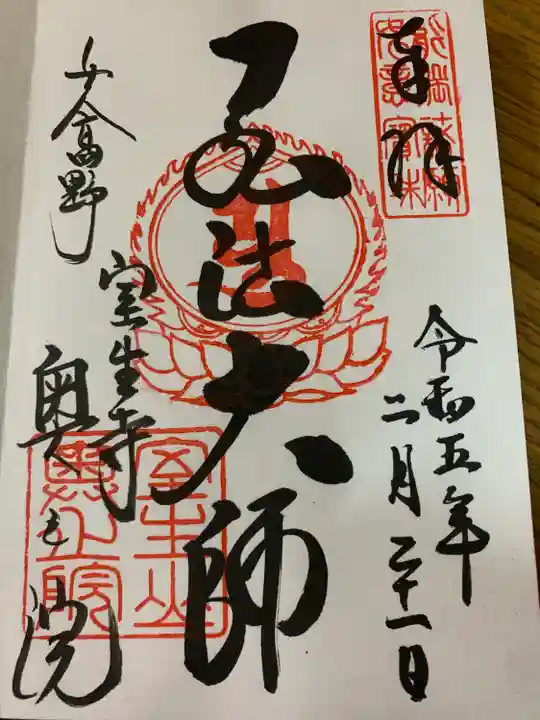 奉拝
令和五年
二月二十一日
弘法大師
女人高野
室生寺
奥之院
室生山
奥之院